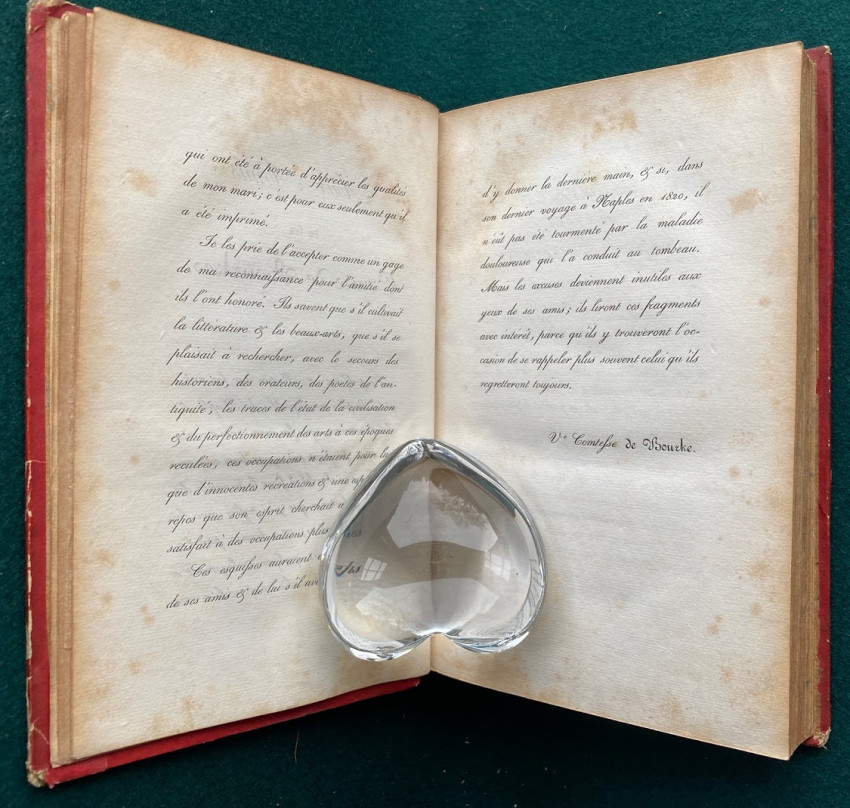 qui ont été à portée d'apprécier les qualités
de mon mari; c'est pour eux seulement qu'il
a été imprimé.
Je les prie de l'accepter comme un gage
de ma reconnaissance pour l'amitié dont
ils l'ont honoré. Ils savent que s'il cultivait
la littérature & les beaux-arts, que s'il se
plaisait à rechercher, avec le secours des
historiens, des orateurs, des poètes de l'an-
tiquité, les traces de l'état de la civilisation
& du perfectionnement des arts à ces époques
reculées, ces occupations n'étaient pour
que d'innocentes récréations & une
repos que son esprit cherchait
satisfait à des occupations plus
Ces esquisses auraient
de ses amis & de lui s'il
d'y donner la dernière main, & si, dans
son dernier voyage à Naples en 1820, il
n'eût pas été tourmenté par la maladie
douloureuse qui l'a conduit au tombeau.
Mais les excuses deviennent inutiles aux
yeux de ses amis; ils liront ces fragments
avec intérêt, parce qu'ils y trouveront l'oc-
casion de se rappeler plus souvent celui qu'ils
regretteront toujours.
Ve Comtesse de Bourke.